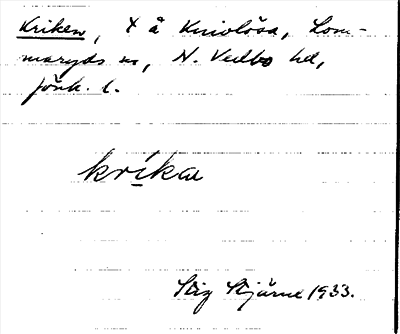 Kriken, X å Knivlösa, Lom-
maryds sn, N. Vedbo hd,
Jönk. l.
krikan
Stig Stjärne 1933.